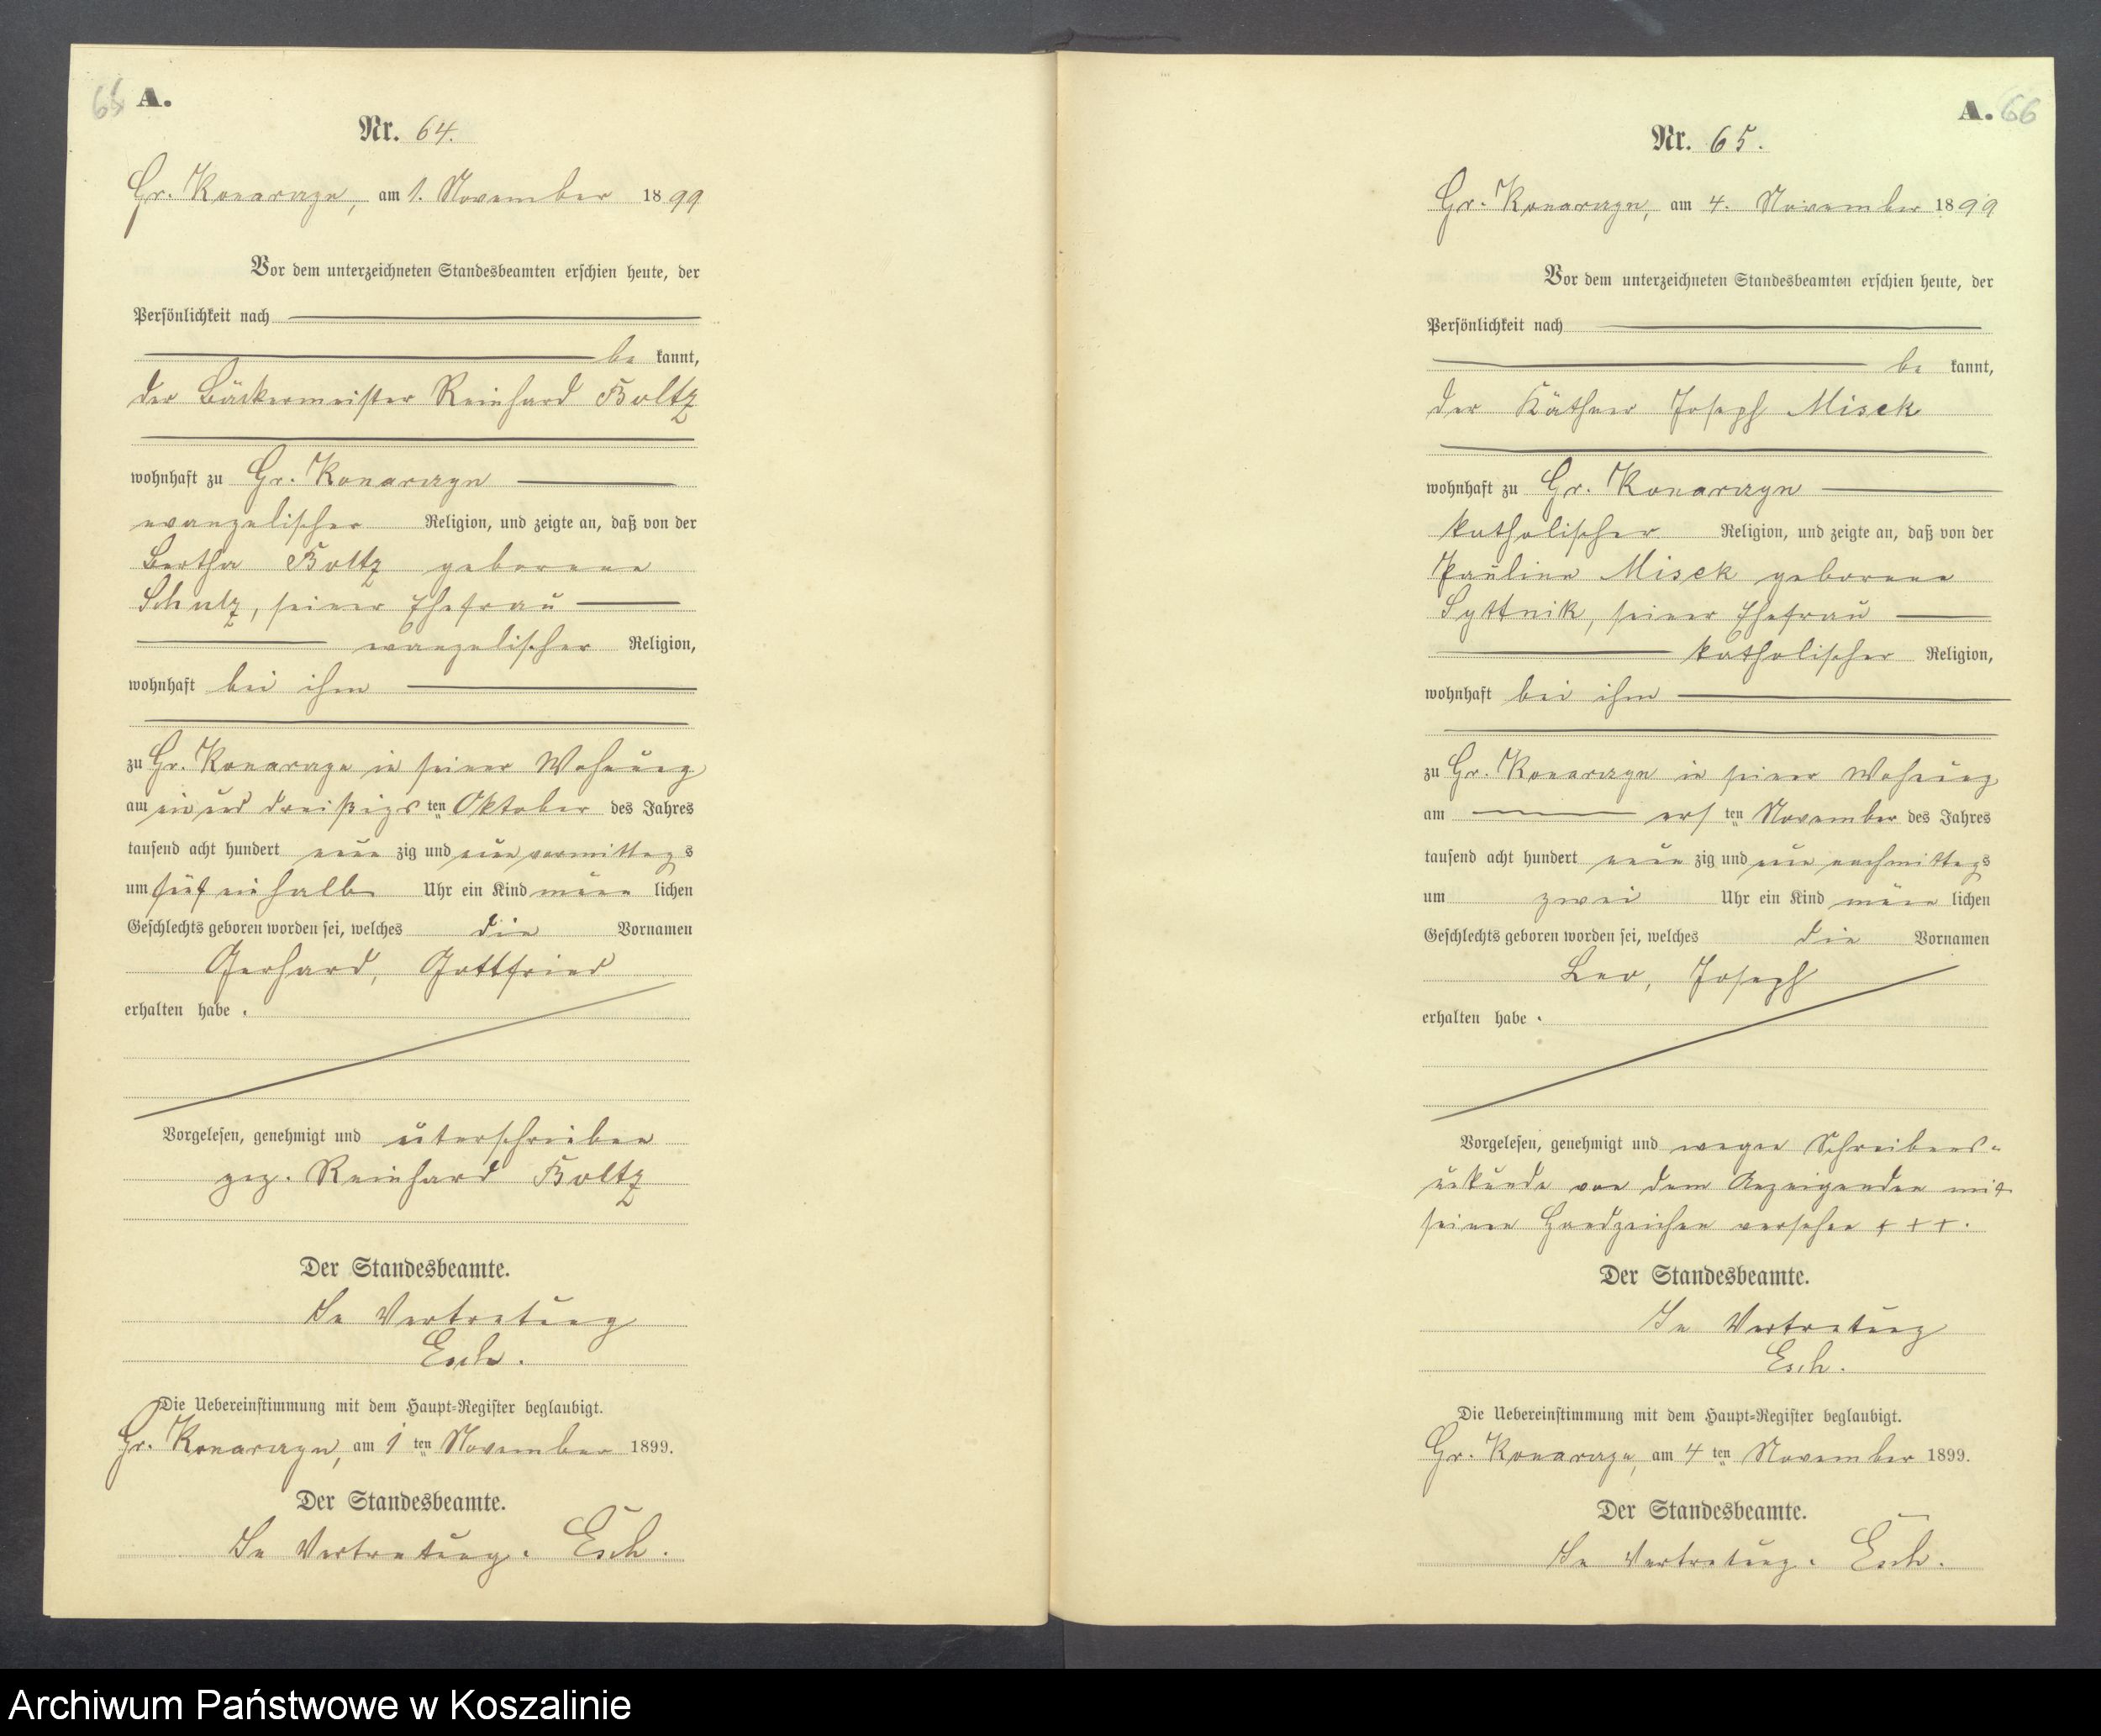 65 A.
Nr. 64.
Gr. Konarczyn, am 1. November 1899
Vor dem unterzeichneten Standesbeamten erschien heute, der
Persönlichkeit nach
be kannt,
der Bäckermeister Reinhard Boltz
wohnhaft zu Gr. Konarczyn
evangelischer Religion, und zeigte an, daß von der
Bertha Boltz geborene
Schulz, seiner Ehefrau
evangelischer Religion,
wohnhaft bei ihm
zu Gr. Konarczyn in seiner Wohnung
am einund dreißigs ten Oktober des Jahres
tausend acht hundert neun zig und neun vormittag s
um fünf ein halb Uhr ein Kind männ lichen
Geschlechts geboren worden sei, welches die Vornamen
Gerhard, Gottfried
erhalten habe.
Vorgelesen, genehmigt und unterschrieben
gez. Reinhard Boltz
Der Standesbeamte.
In Vertretung
Esch.
Die Uebereinstimmung mit dem Haupt-Register beglaubigt.
Gr. Konarczyn, am 1 ten November 1899.
Der Standesbeamte.
In Vertretung. Esch.
A. 66
Nr. 65.
Gr. Konarczyn, am 4. November 1899
Vor dem unterzeichneten Standesbeamten erschien heute, der
Persönlichkeit nach
be kannt,
der Käthner Joseph Misek
wohnhaft zu Gr. Konarczyn
katholischer Religion, und zeigte an, daß von der
Pauline Misek geborene
Syttnik, seiner Ehefrau
katholischer Religion,
wohnhaft bei ihm
zu Gr. Konarczyn in seiner Wohnung
am ers ten November des Jahres
tausend acht hundert neun zig und neun nachmittags
um zwei Uhr ein Kind männ lichen
Geschlechts geboren worden sei, welches die Vornamen
Leo, Joseph
erhalten habe.
Vorgelesen, genehmigt und wegen Schreibens-
unkunde von dem Anzeigenden mit
seinen Handzeichen versehen + + +.
Der Standesbeamte.
In Vertretung
Esch.
Die Uebereinstimmung mit dem Haupt-Register beglaubigt.
Gr. Konarczyn, am 4 ten November 1899.
Der Standesbeamte.
In Vertretung. Esch.
Archiwum Państwowe w Koszalinie